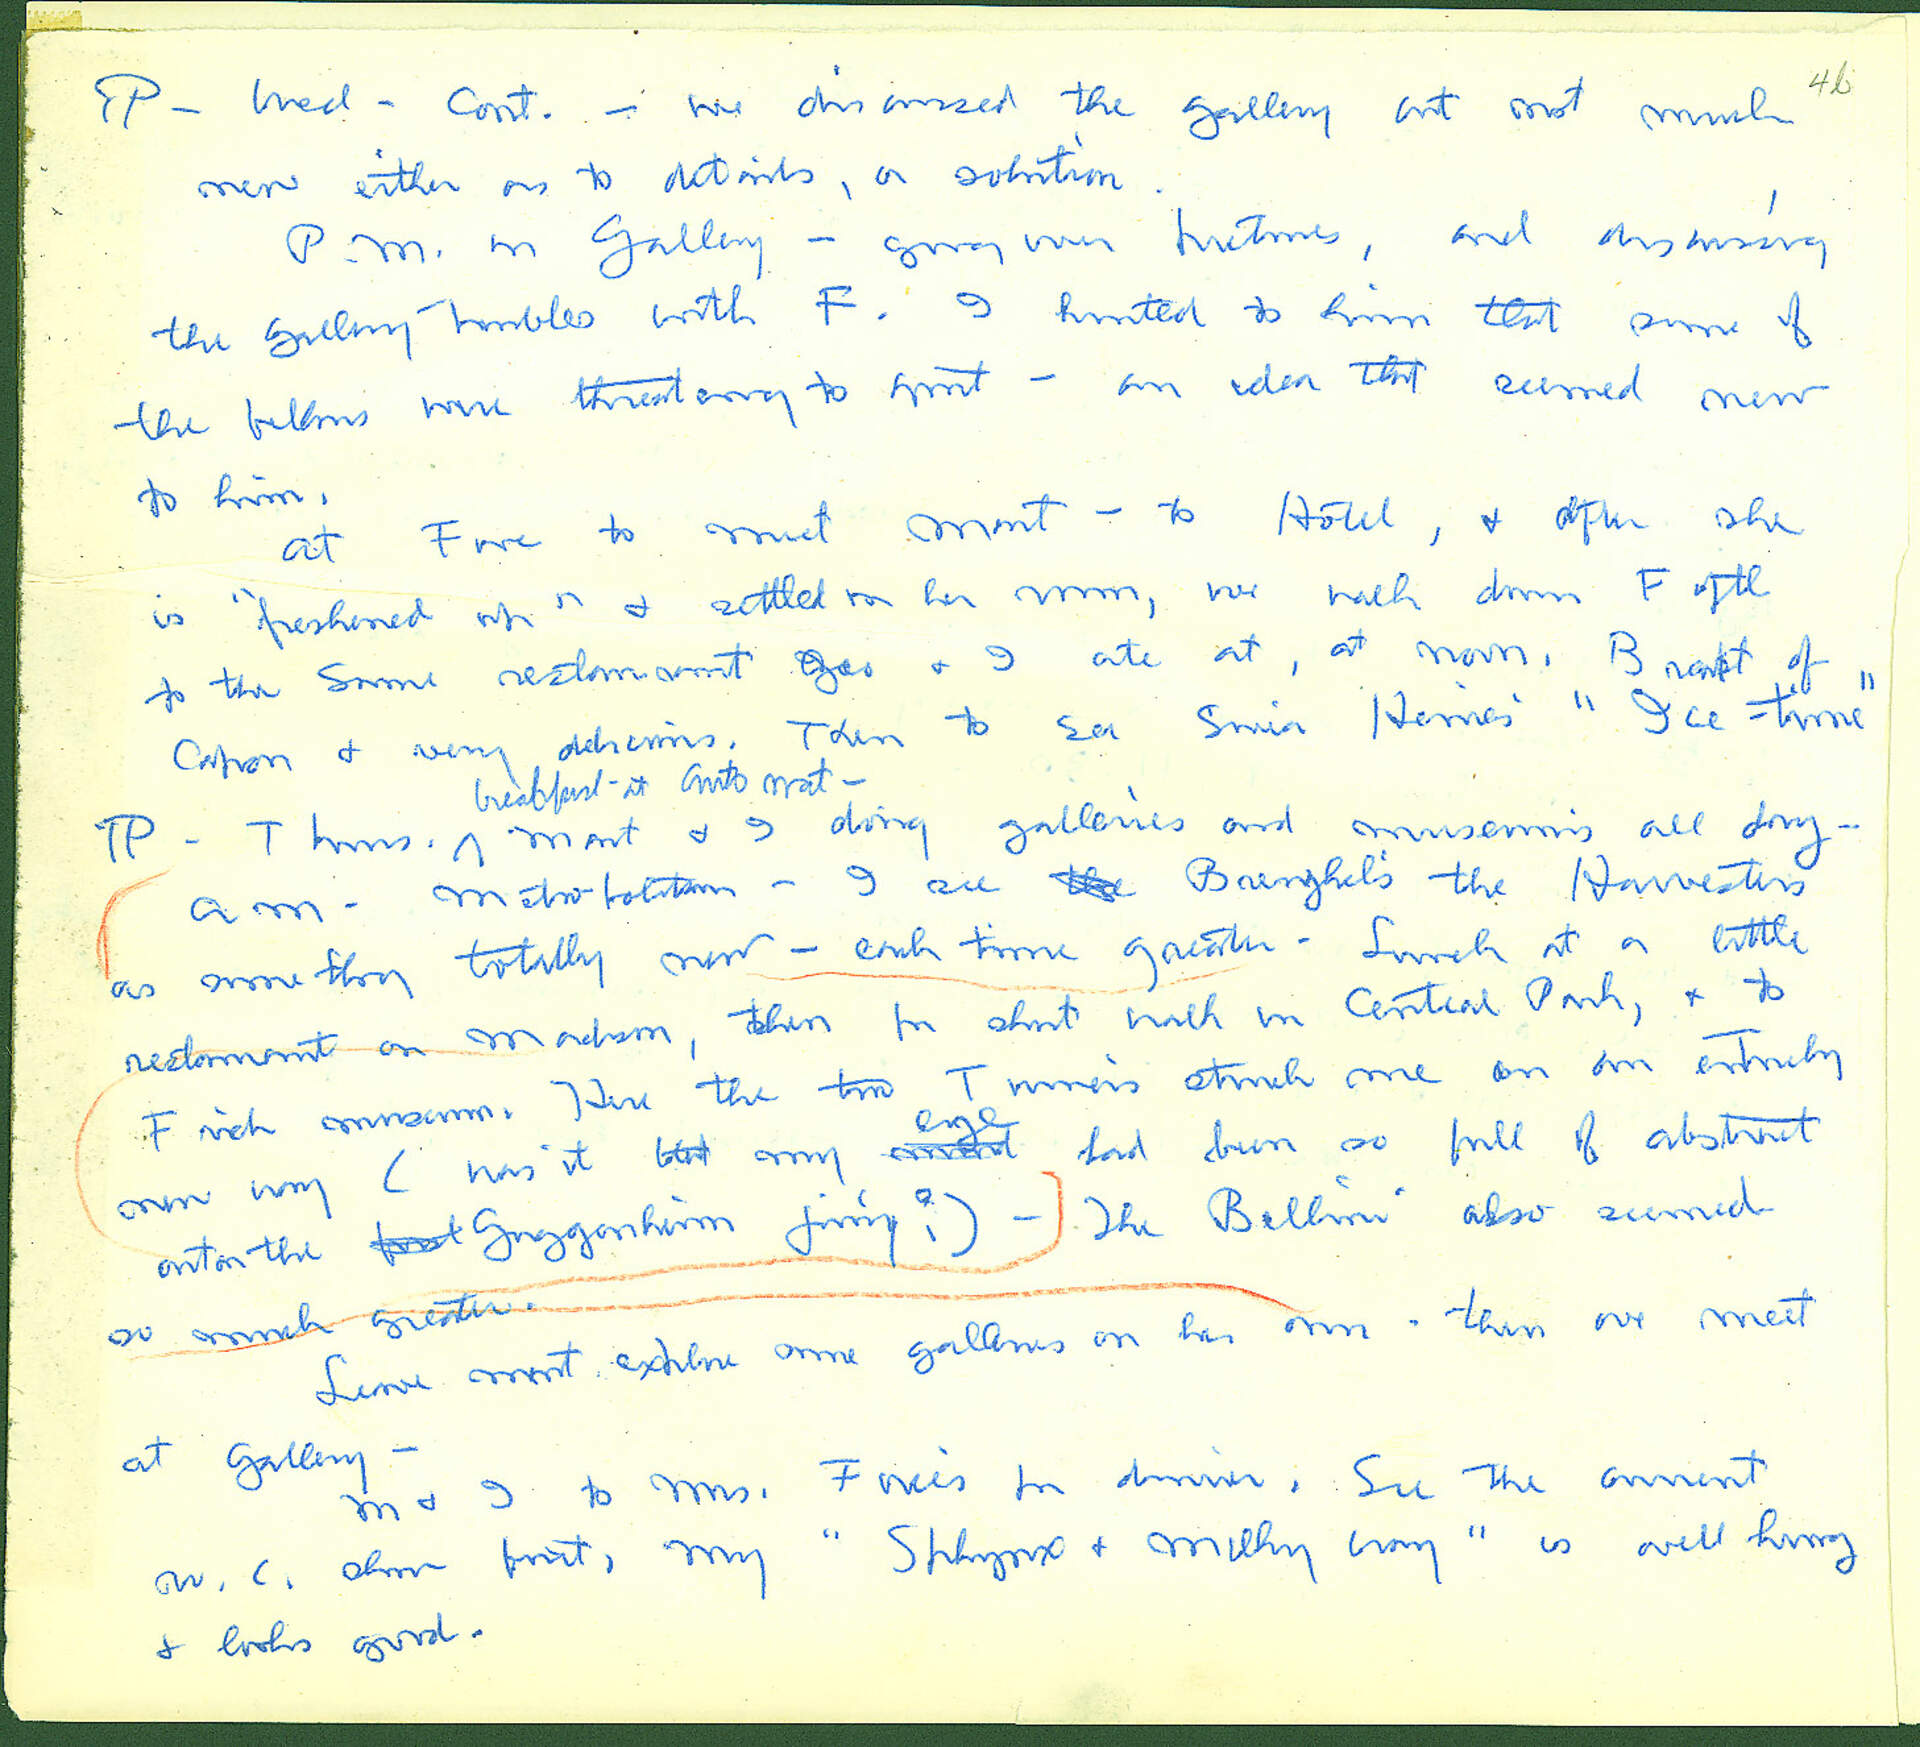 46
TP – Wed – Cont. – we discussed the gallery but not much
new either as to details, or solution.
P.M. in Gallery – going over pictures, and discussing
the gallery troubles with F. I hinted to him that some of
the fellows were threatening to quit – an idea that seemed new
to him.
at Five to meet Mart – to Hotel, & after she
is "freshened up" & settled in her room, we walk down Fifth
to the same restaurant Geo & I ate at, at noon. Breast of
Capon & very delicious. Then to see Sonia Henies' "Ice-time"
breakfast at Automat –
TP – Thurs. ^ Mart & I doing galleries and museums all day –
am – Metropolitan – I see the Brueghel's the Harvesters
as something totally new – each time greater – Lunch at a little
restaurant on Madison, then for short walk in Central Park, & to
Frick museum. Here the two Turners struck me in an entirely
eye
new way ( was it that my mind had been so full of abstract
art on the Guggenheim jury?) – The Bellini also seemed
so much greater.
Leave Mart explore some galleries on her own – then we meet
at Gallery –
M & I to Mrs. Force's for dinner. See the current
w.c. show first, my "Sphynx & Milky Way" is well hung
& looks good.